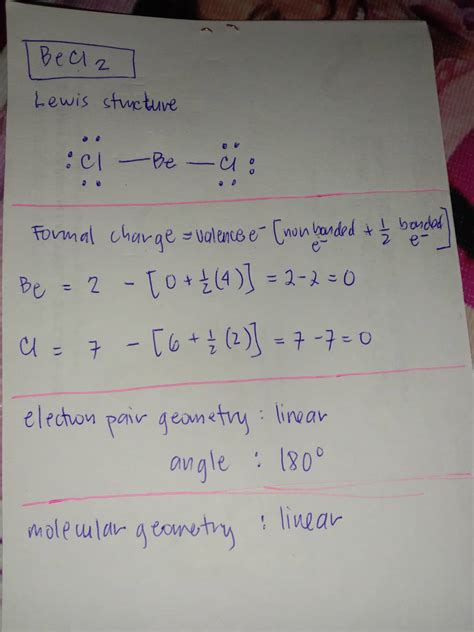 BeCl2
Lewis structure
:Cl — Be — Cl:
Formal charge = valence e- [nonbonded e- + 1/2 bonded e-]
Be = 2 - [0 + 1/2 (4)] = 2 - 2 = 0
Cl = 7 - [6 + 1/2 (2)] = 7 - 7 = 0
electron pair geometry : linear
angle : 180°
molecular geometry : linear